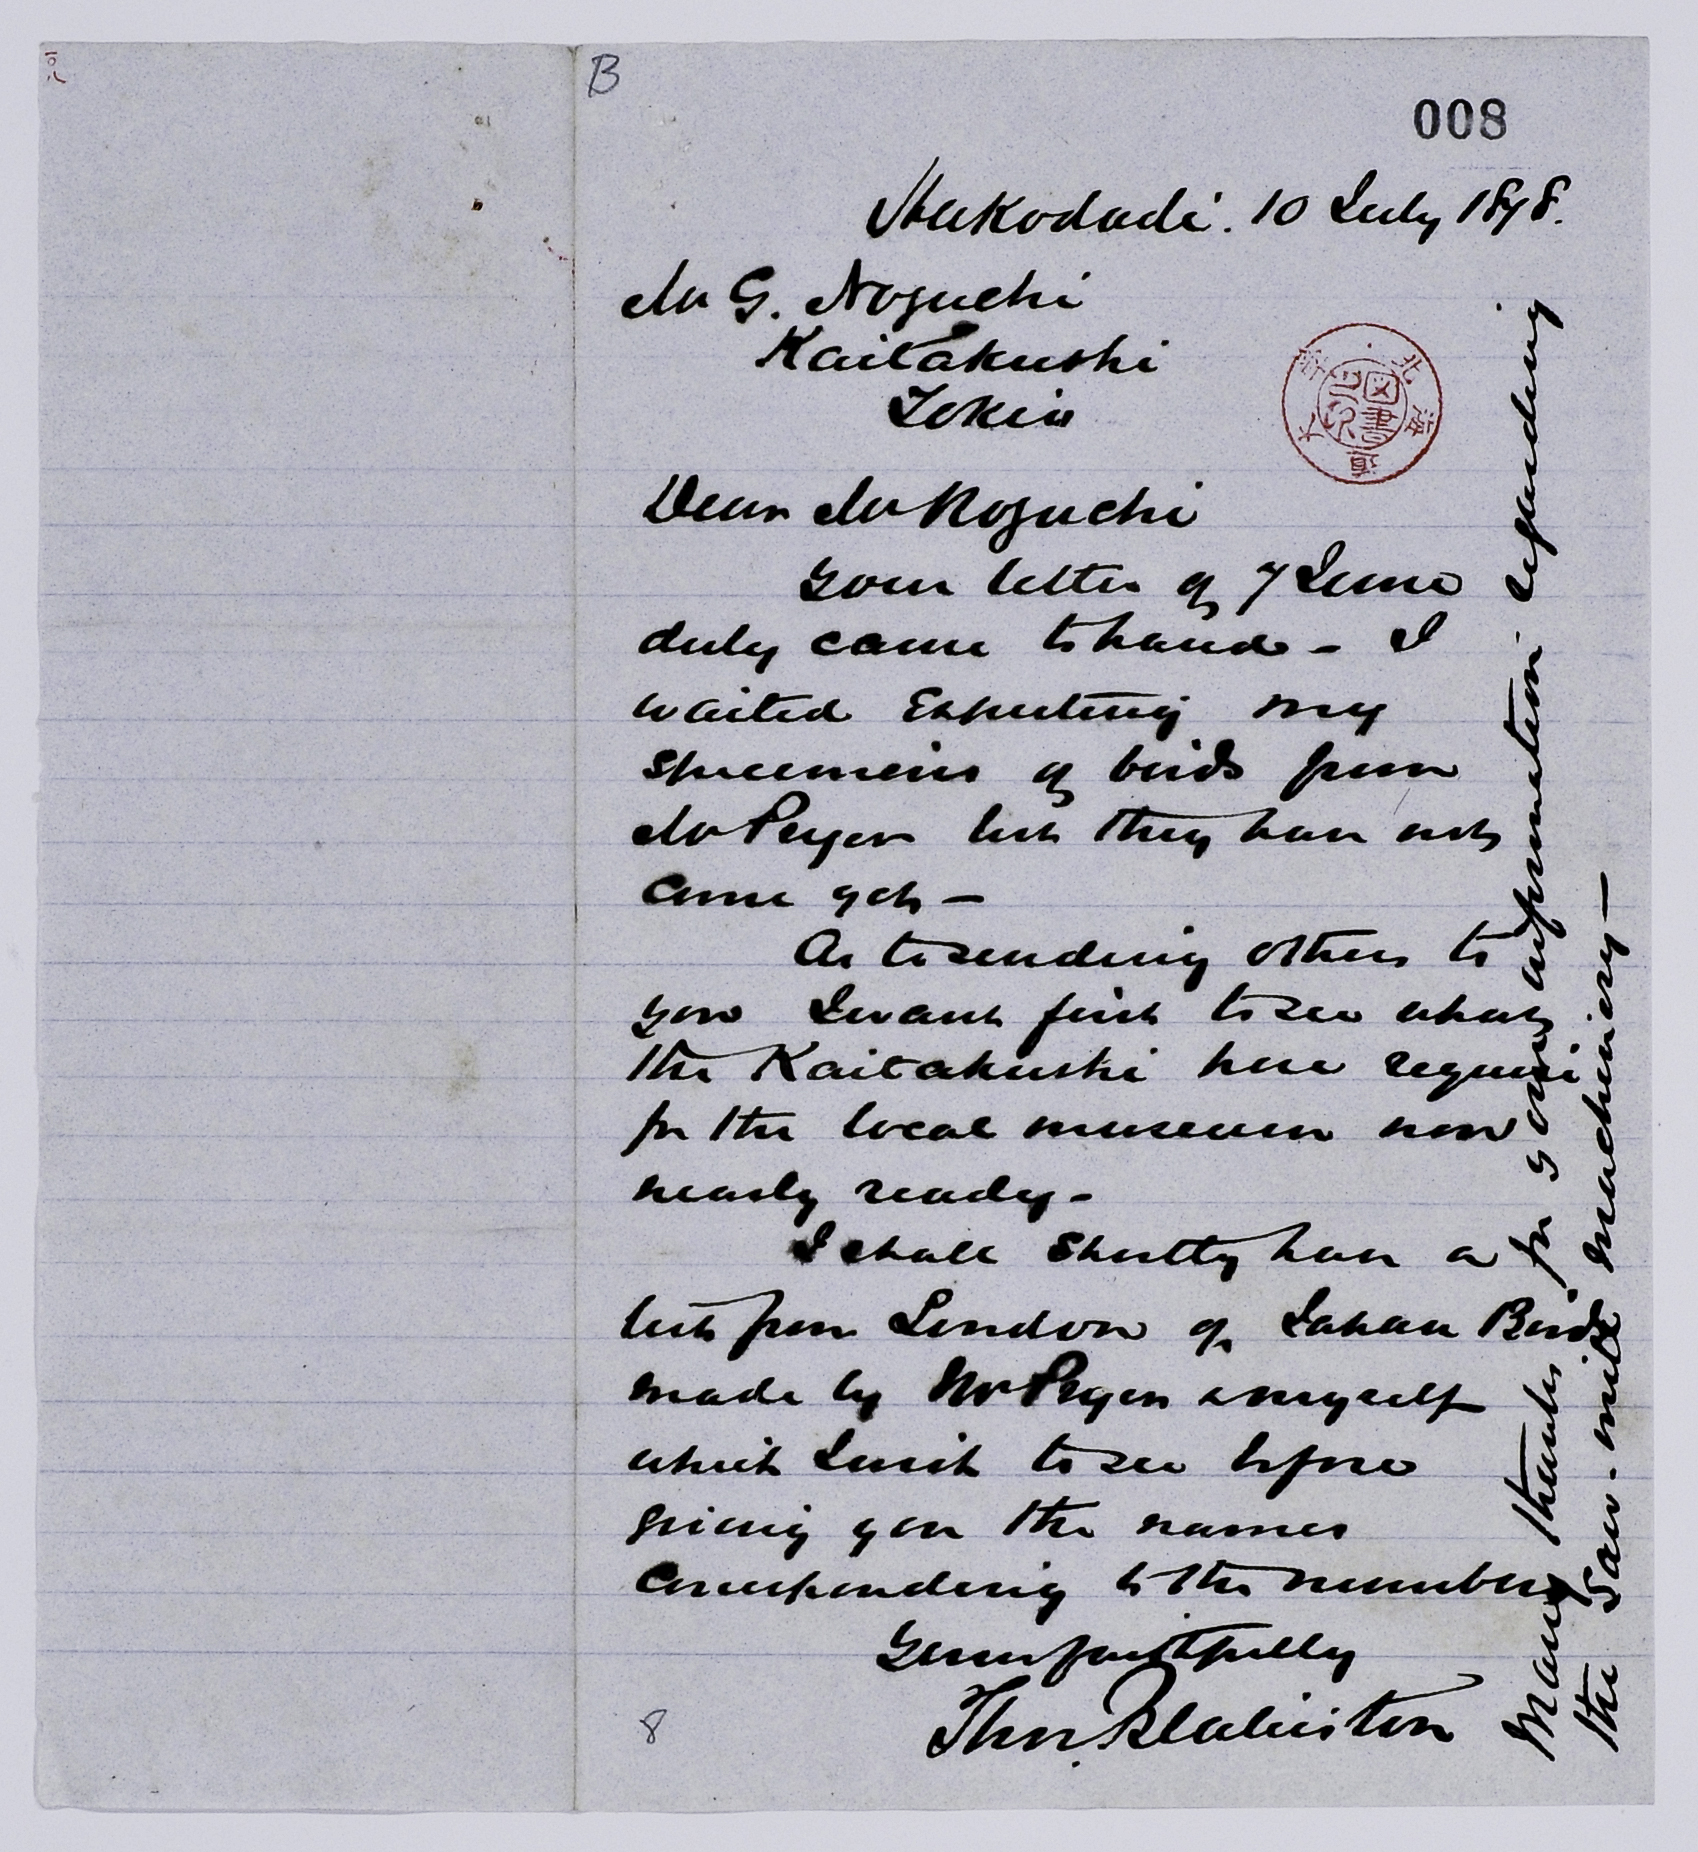 B
008
Hakodadi. 10 July 1878.
Mr G. Noguchi
Kaitakushi
Tokio
Dear Mr Noguchi
Your letter of 7 June
duly came to hand - I
waited expecting my
specimens of birds from
Mr Pryer but they have not
come yet -
As to sending others to
you I want first to see what
the Kaitakushi here require
for the local museum now
nearly ready -
I shall shortly have a
list from London of Japan Birds
made by Mr Pryer & myself
which I wish to see before
giving you the names
corresponding to the numbers
Yours faithfully
Thos. Blakiston
8
Many thanks for your information regarding
the Saw-mill machinery -
北海道大学
図書